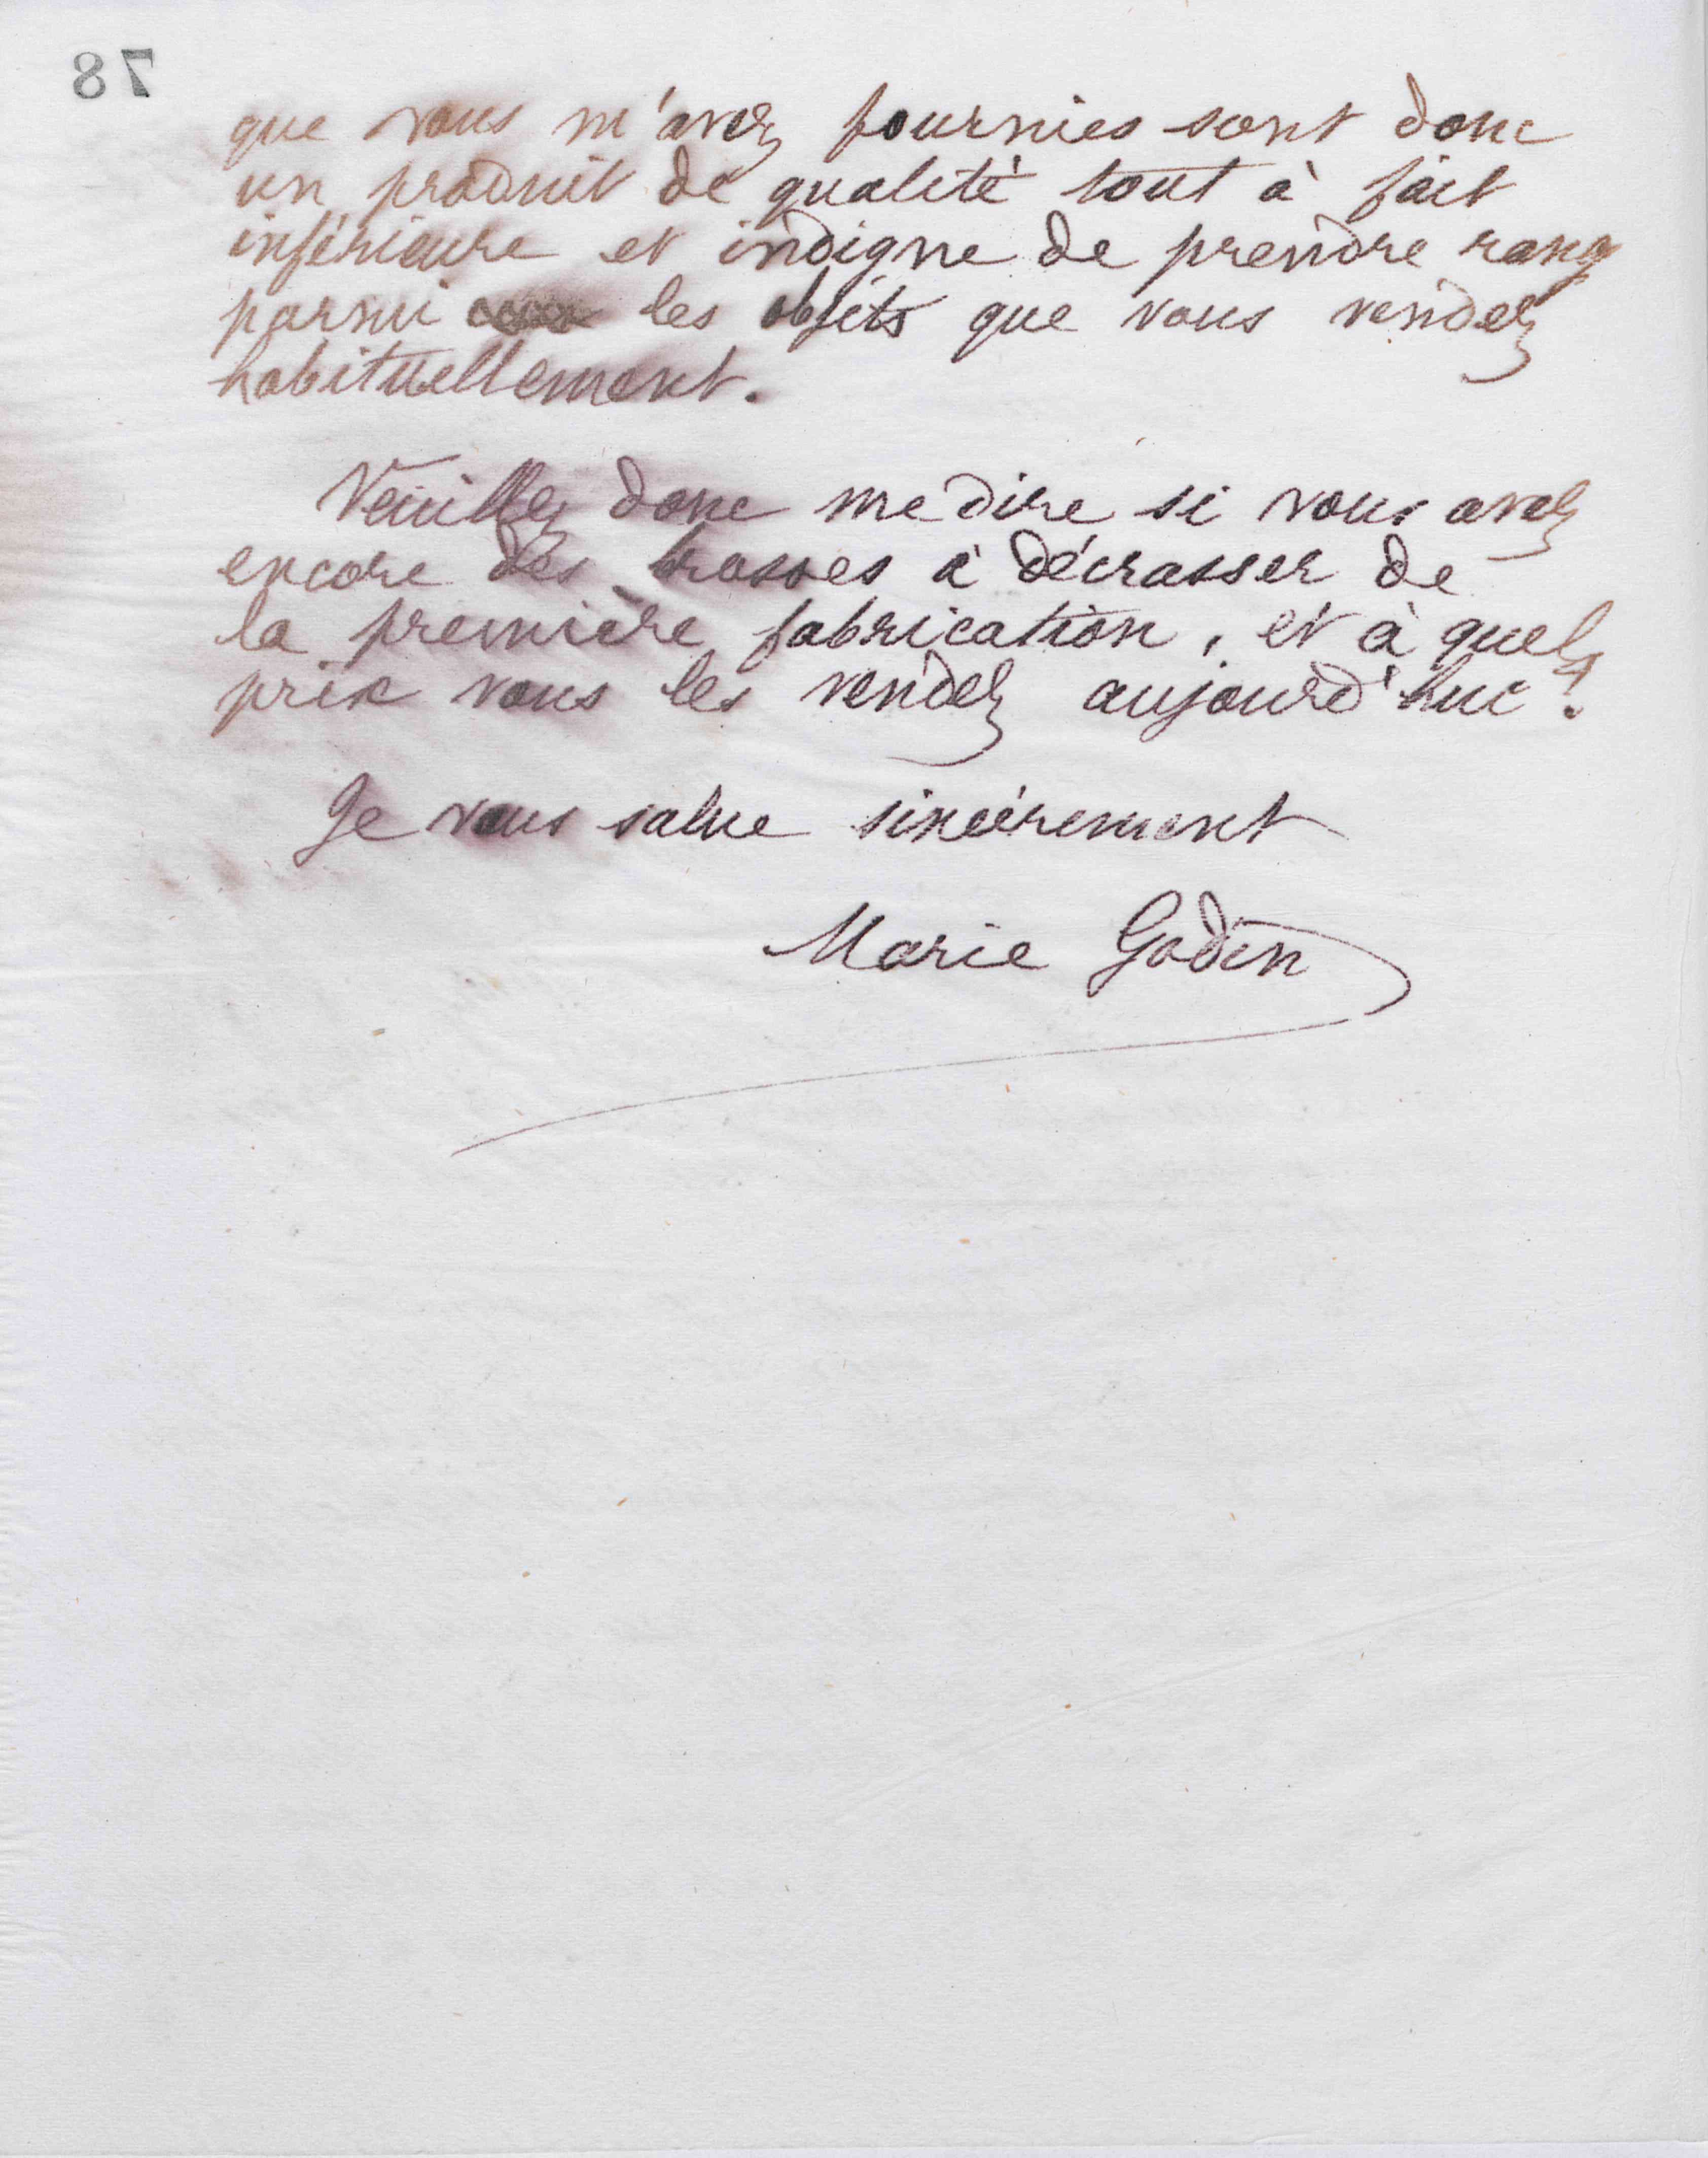 78
que vous m'avez fournies sont donc
un produit de qualité tout à fait
inférieure et indigne de prendre rang
parmi les objets que vous vendez
habituellement.
Veuillez donc me dire si vous avez
encore des brosses à décrasser de
la première fabrication, et à quels
prix vous les vendez aujourd'hui ?
Je vous salue sincèrement
Marie Godin